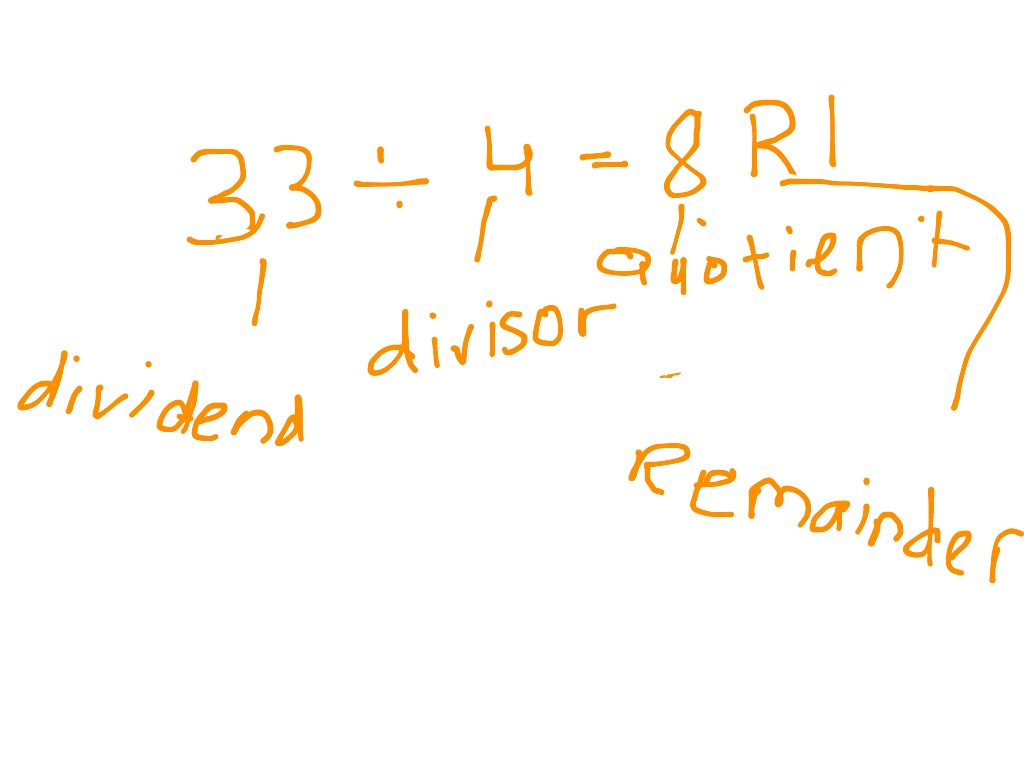 33 ÷ 4 = 8 R1
quotient
divisor
dividend
remainder